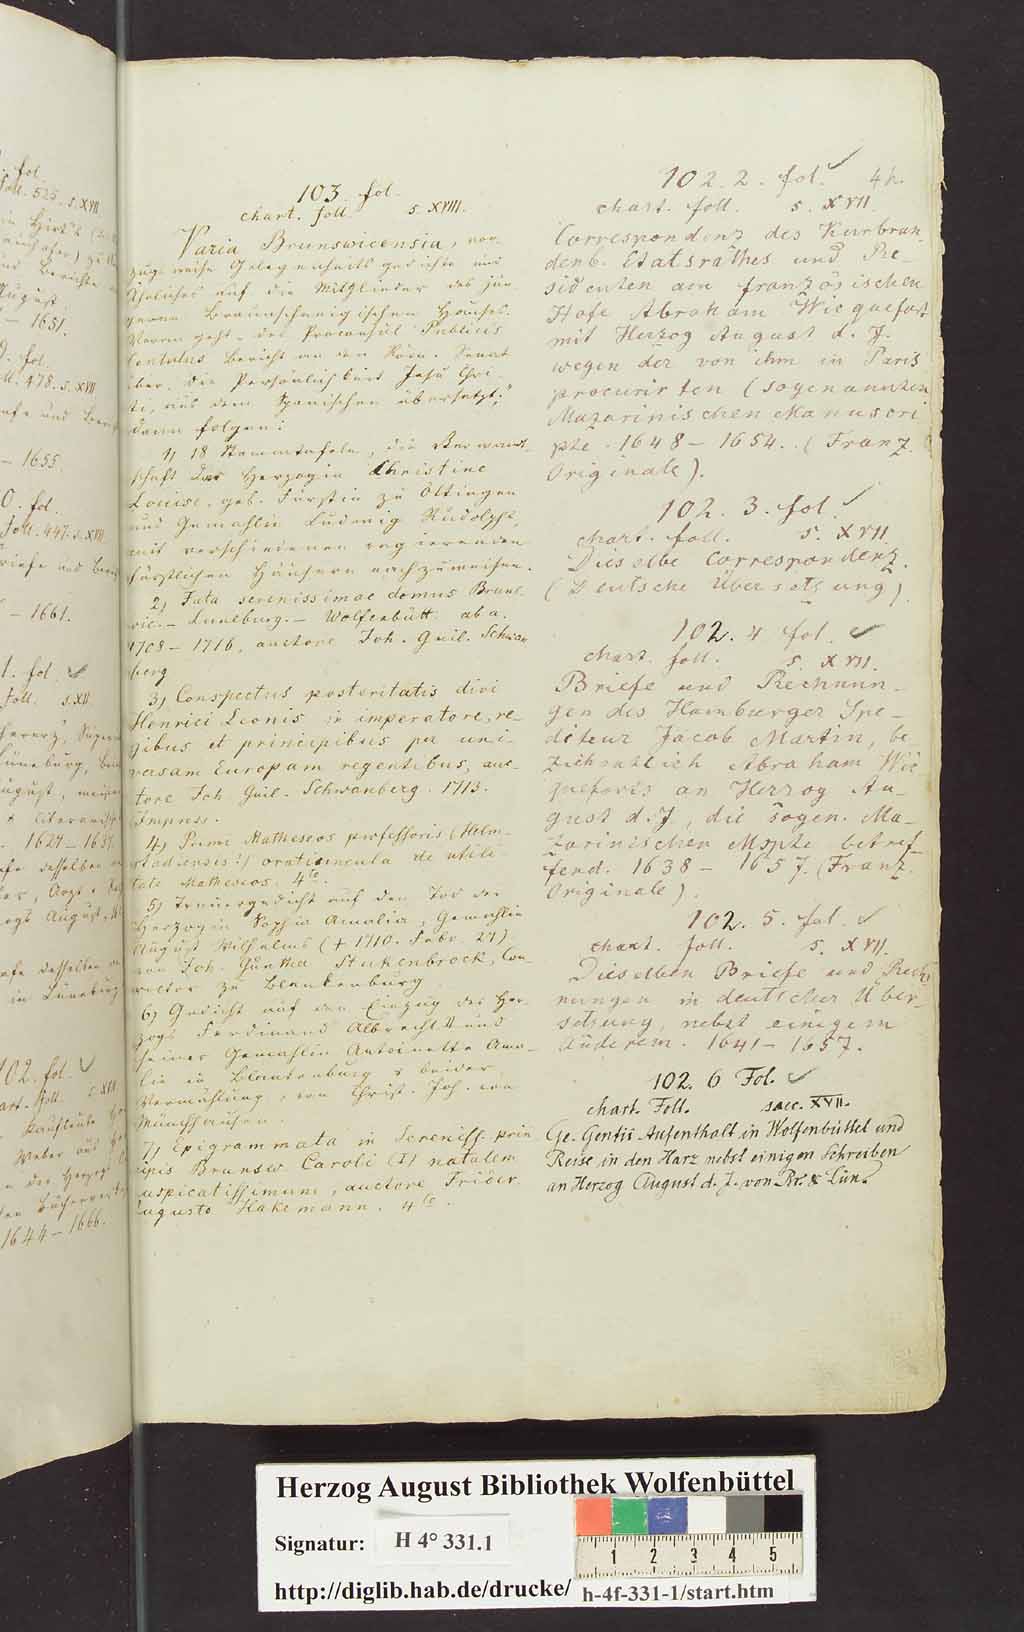 103. fol.
chart. foll. s. XVIII.
Varia Brunswicensia, vor-
zugsweise Gelegenheitsgedichte und
Ähnliches auf die Mitglieder des jün-
geren Braunschweigischen Hauses.
Voran geht: des Proconsul Publius
Lentulus Bericht an den Röm. Senat
über die Persönlichkeit Jesu Chri-
sti, aus dem Spanischen übersetzt;
dann folgen:
1) 18 Stammtafeln, die Verwandt-
schaft der Herzogin Christine
Louise, geb. Fürstin zu Öttingen
und Gemahlin Ludwig Rudolphs,
mit verschiedenen regierenden
fürstlichen Häusern nachzuweisen.
2) Fata serenissimae domus Bruns-
vic. - Luneburg. - Wolfenbütt. ab a.
1708 - 1716, auctore Joh. Guil. Schwan
berg
3) Conspectus posteritatis divi
Henrici Leonis in imperatore, re-
gibus et principibus per uni-
versam Europam regentibus, auc-
tore Joh. Guil. Schwanberg. 1713.
Impress.
4) Primi Matheseos professoris (Helm-
stadiensis?) oratiuncula de utili
tate Matheseos. 4to.
5) Trauergedicht auf den Tod der
Herzogin Sophia Amalia, Gemahlin
August Wilhelms († 1710. Febr. 27)
von Joh. Günther Stukenbrock, Con-
rector zu Blankenburg.
6) Gedicht auf den Einzug des Her-
zogs Ferdinand Albrecht II und
seiner Gemahlin Antoinette Ama-
lie in Blankenburg & beider
Vermählung, von Christ. Joh. von
Münchhausen.
7) Epigrammata in Sereniss. prin
cipis Brunsv. Caroli (I) natalem
auspicatissimum, auctore Frider.
Augusto Hakemann. 4to.
102. 2. fol. 4h.
chart. foll. s. XVII.
Correspondenz des Kurbran-
denb. Etatsrathes und Re-
sidenten am französischen
Hofe Abraham Wicquefort
mit Herzog August d. J.
wegen der von ihm in Paris
procurirten (sogenannten
Mazarinischen Manuscri
pte. 1648 - 1654. (Franz.
Originale).
102. 3. fol.
chart. foll. s. XVII.
Dieselbe Correspondenz.
(Deutsche Übersetzung)
102. 4 fol.
chart. foll. s. XVII.
Briefe und Rechnun-
gen des Hamburger Spe-
diteur Jacob Martin, be-
ziehentlich Abraham Wic
queforts an Herzog Au-
gust d. J, die sogen. Ma-
zarinischen Mspte betref-
fend. 1638 - 1657. (Franz.
Originale).
102. 5. fol.
chart. foll. s. XVII.
Dieselben Briefe und Rech-
nungen in deutscher Über-
setzung, nebst einigem
Anderem. 1641 - 1657.
102. 6 Fol.
chart. Foll. saec. XVII.
Ge. Gentii Aufenthalt in Wolfenbüttel und
Reise in den Harz nebst einigen Schreiben
an Herzog August d. J. von Br. & Lün.
Herzog August Bibliothek Wolfenbüttel
Signatur: H 4° 331.1
1 2 3 4 5
http://diglib.hab.de/drucke/ h-4f-331-1/start.htm